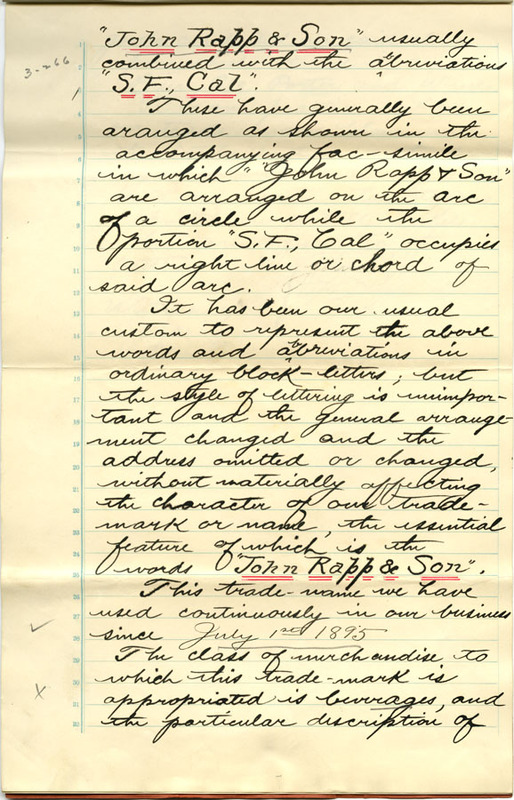 "John Rapp & Son" usually
3-266
combined with the abbreviations
"S. F., Cal".
These have generally been
aranged as shown in the
accompanying fac-simile
in which "John Rapp & Son"
are arranged on the arc
of a circle while the
portion "S. F., Cal" occupies
a right line or chord of
said arc.
It has been our usual
custom to represent the above
words and abbreviations in
ordinary block-letters; but
the style of lettering is unimpor-
tant and the general arrange-
ment changed and the
address omitted or changed,
without materially affecting
the character of our trade-
mark or name, the essential
feature of which is the
words "John Rapp & Son".
This trade-name we have
used continuously in our business
since July 1st 1895
The class of merchandise to
which this trade-mark is
appropriated is beverages, and
the particular description of